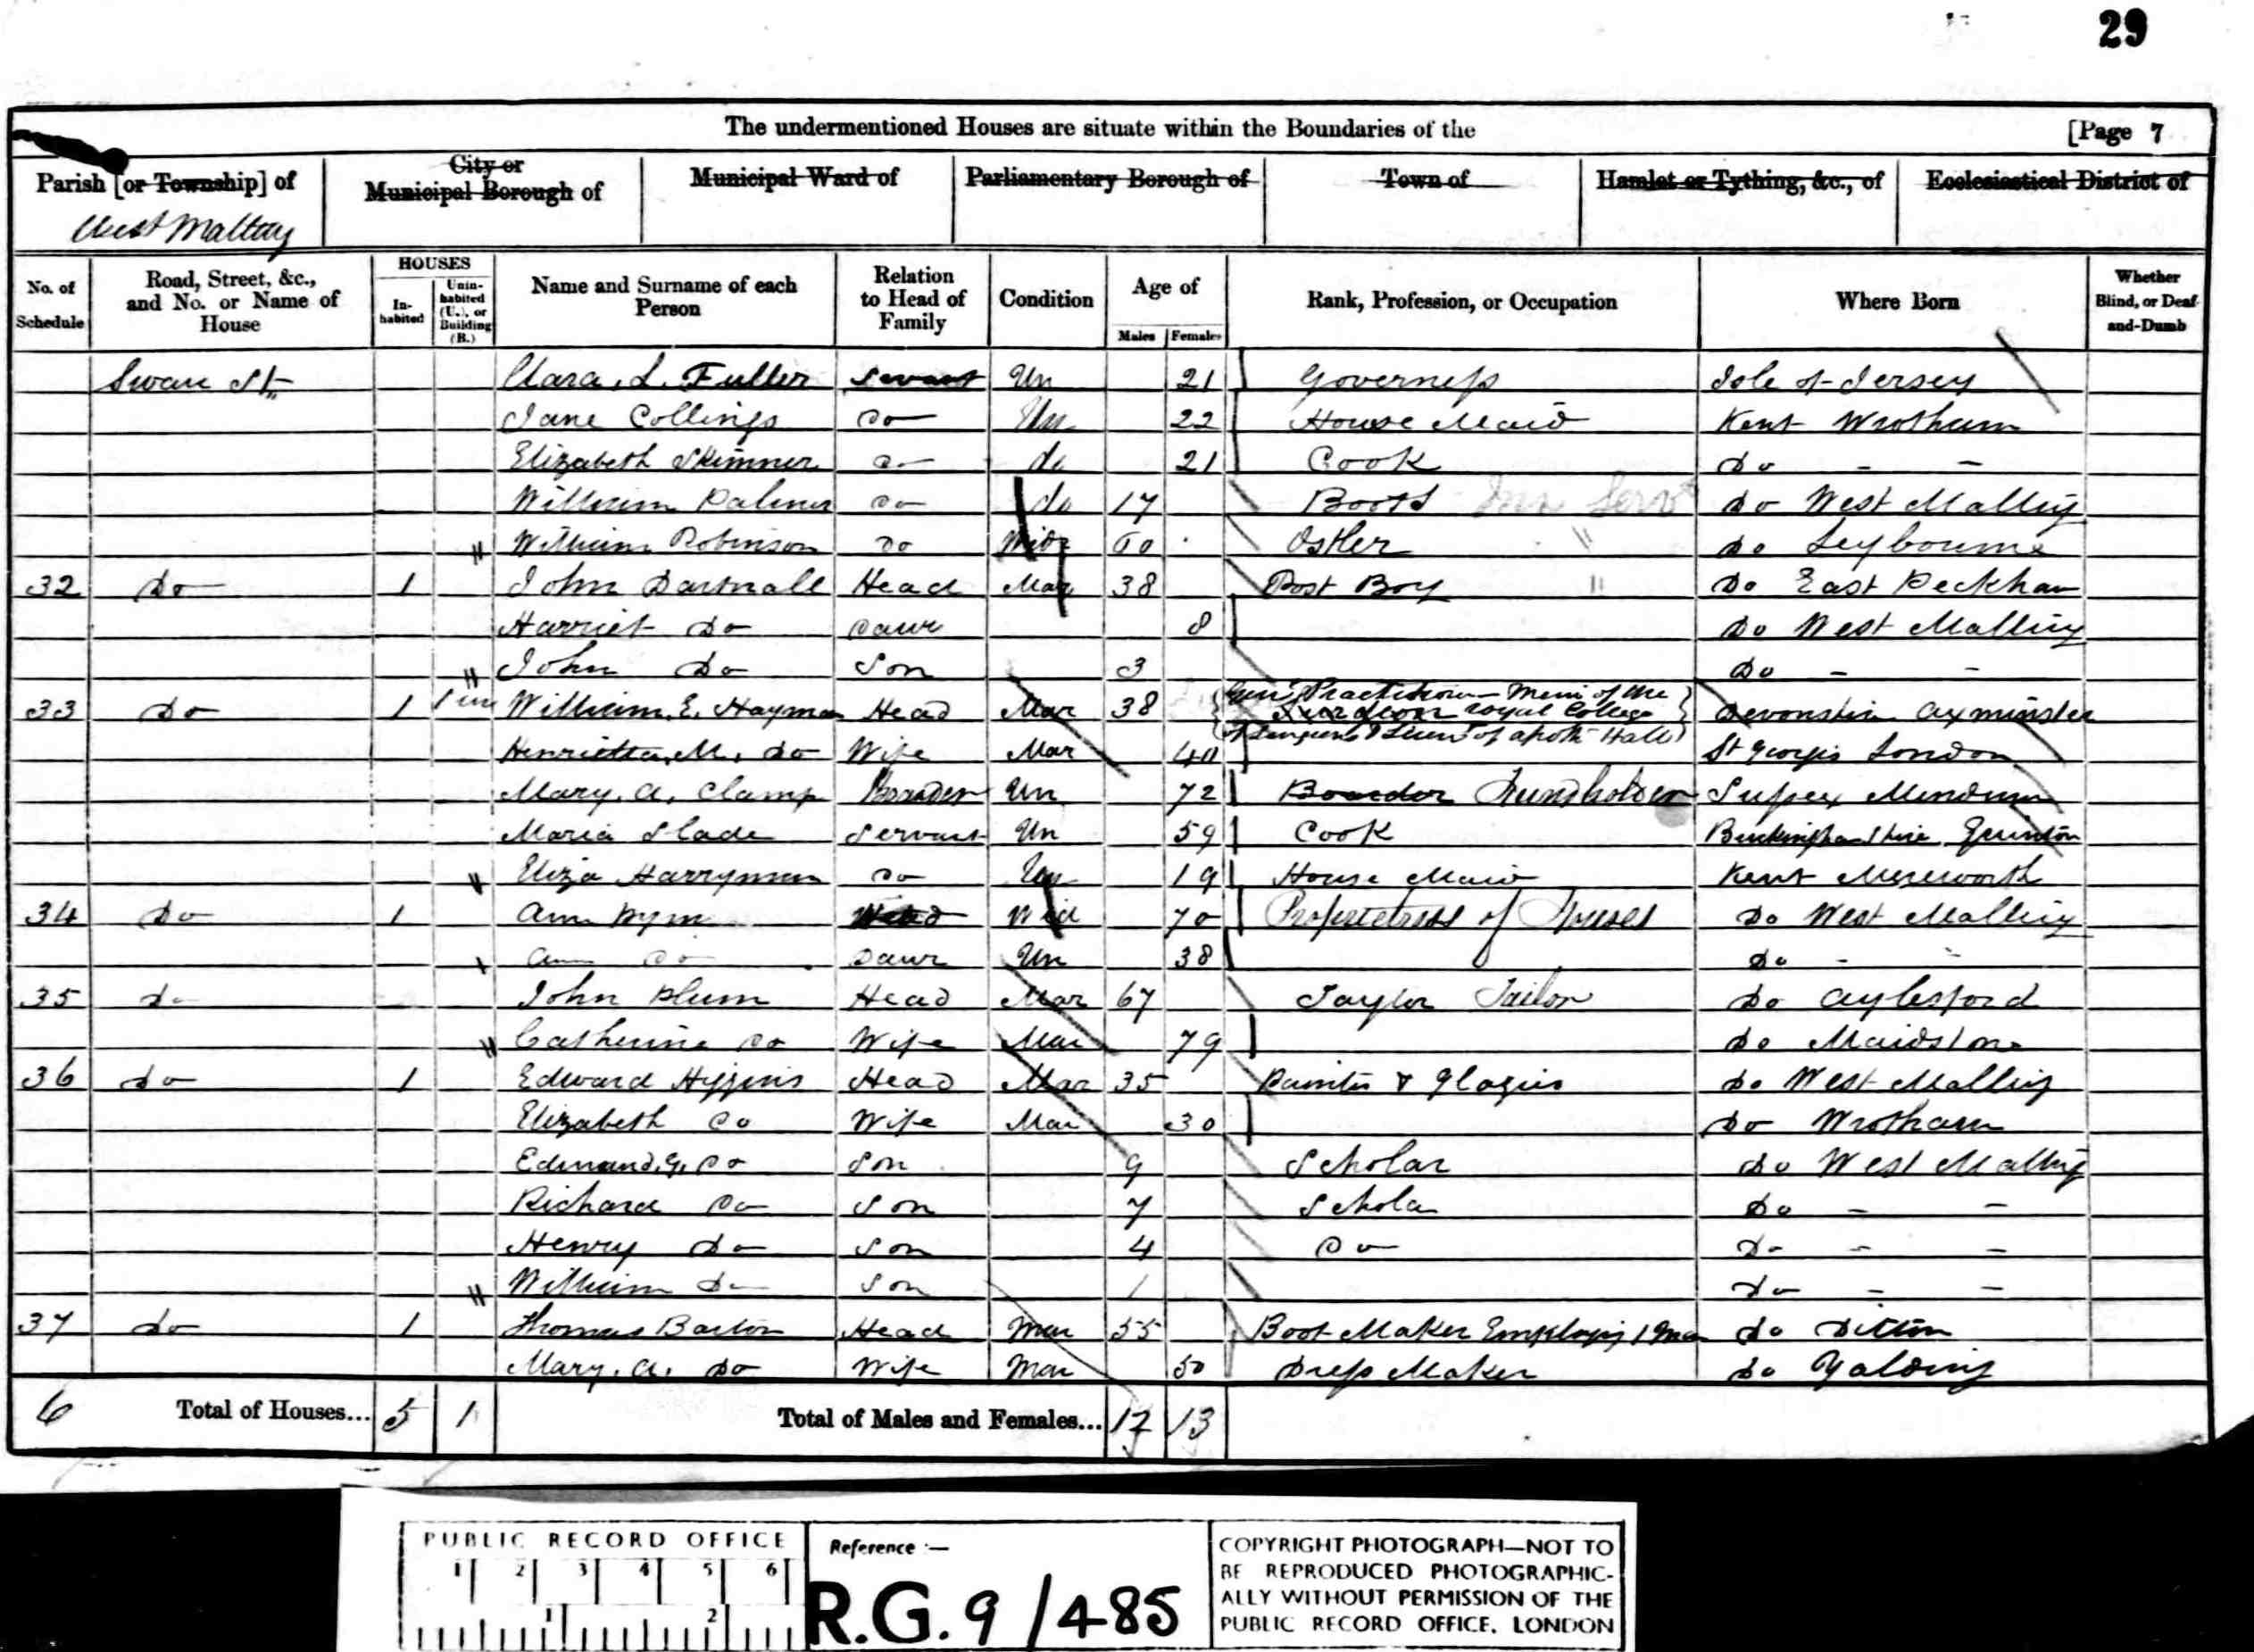 29
The undermentioned Houses are situate within the Boundaries of the [Page 7
Parish [or Township] of City or Municipal Borough of Municipal Ward of Parliamentary Borough of Town of Hamlet or Tything, &c., of Ecclesiastical District of
West Malling
No. of Schedule Road, Street, &c., and No. or Name of House HOUSES Inhabited Uninhabited (U.), or Building (B.) Name and Surname of each Person Relation to Head of Family Condition Age of Males Females Rank, Profession, or Occupation Where Born Whether Blind, or Deaf-and-Dumb
Swan St Clara. L. Fuller Servant Un 21 Governess Isle of Jersey
Jane Collings Do Un 22 House Maid Kent Wrotham
Elizabeth Skinner Do do 21 Cook Do - -
William Palmer Do do 17 Boots Inn Servt Do West Malling
William Robinson Do Widr 60 Ostler " Do Leybourne
32 Do 1 John Dartnall Head Mar 38 Post Boy " Do East Peckham
Harriet Do Daur 8 Do West Malling
John Do Son 3 Do - -
33 Do 1 1 un William. E. Hayman Head Mar 38 Genl Practitioner - Mem of the Surgeon Royal College Devonshire Axminster
of Surgeons & Licen of Apoth Hall
Henrietta. M. Do Wife Mar 40 St Georges London
Mary. A. Clamp Boarder Un 72 Boarder Fundholder Sussex
Maria Slade Servant Un 59 Cook Buckinghamshire Quinton
Eliza Harryman Do Un 19 House Maid Kent Mereworth
34 Do 1 Ann Pym Head Wid 70 Proprietress of Houses Do West Malling
Ann Do Daur Un 38 Do - -
35 Do John Plum Head Mar 67 Taylor Tailor Do Aylesford
Catherine Do Wife Mar 79 Do Maidstone
36 Do 1 Edward Higgins Head Mar 35 Painter & Glazier Do West Malling
Elizabeth Do Wife Mar 30 Do Wrotham
Edmund. G. Do Son 9 Scholar Do West Malling
Richard Do Son 7 Schola Do - -
Henry Do Son 4 Do Do - -
William Do Son 1 Do - -
37 Do 1 Thomas Barton Head Mar 55 Boot Maker Employing 1 Man Do Ditton
Mary. A. Do Wife Mar 50 Dress Maker Do Yalding
6 Total of Houses... 5 1 Total of Males and Females... 12 13
PUBLIC RECORD OFFICE
1 2 3 4 5 6
1 2
Reference :—
R.G. 9/485
COPYRIGHT PHOTOGRAPH—NOT TO
BE REPRODUCED PHOTOGRAPHIC-
ALLY WITHOUT PERMISSION OF THE
PUBLIC RECORD OFFICE, LONDON